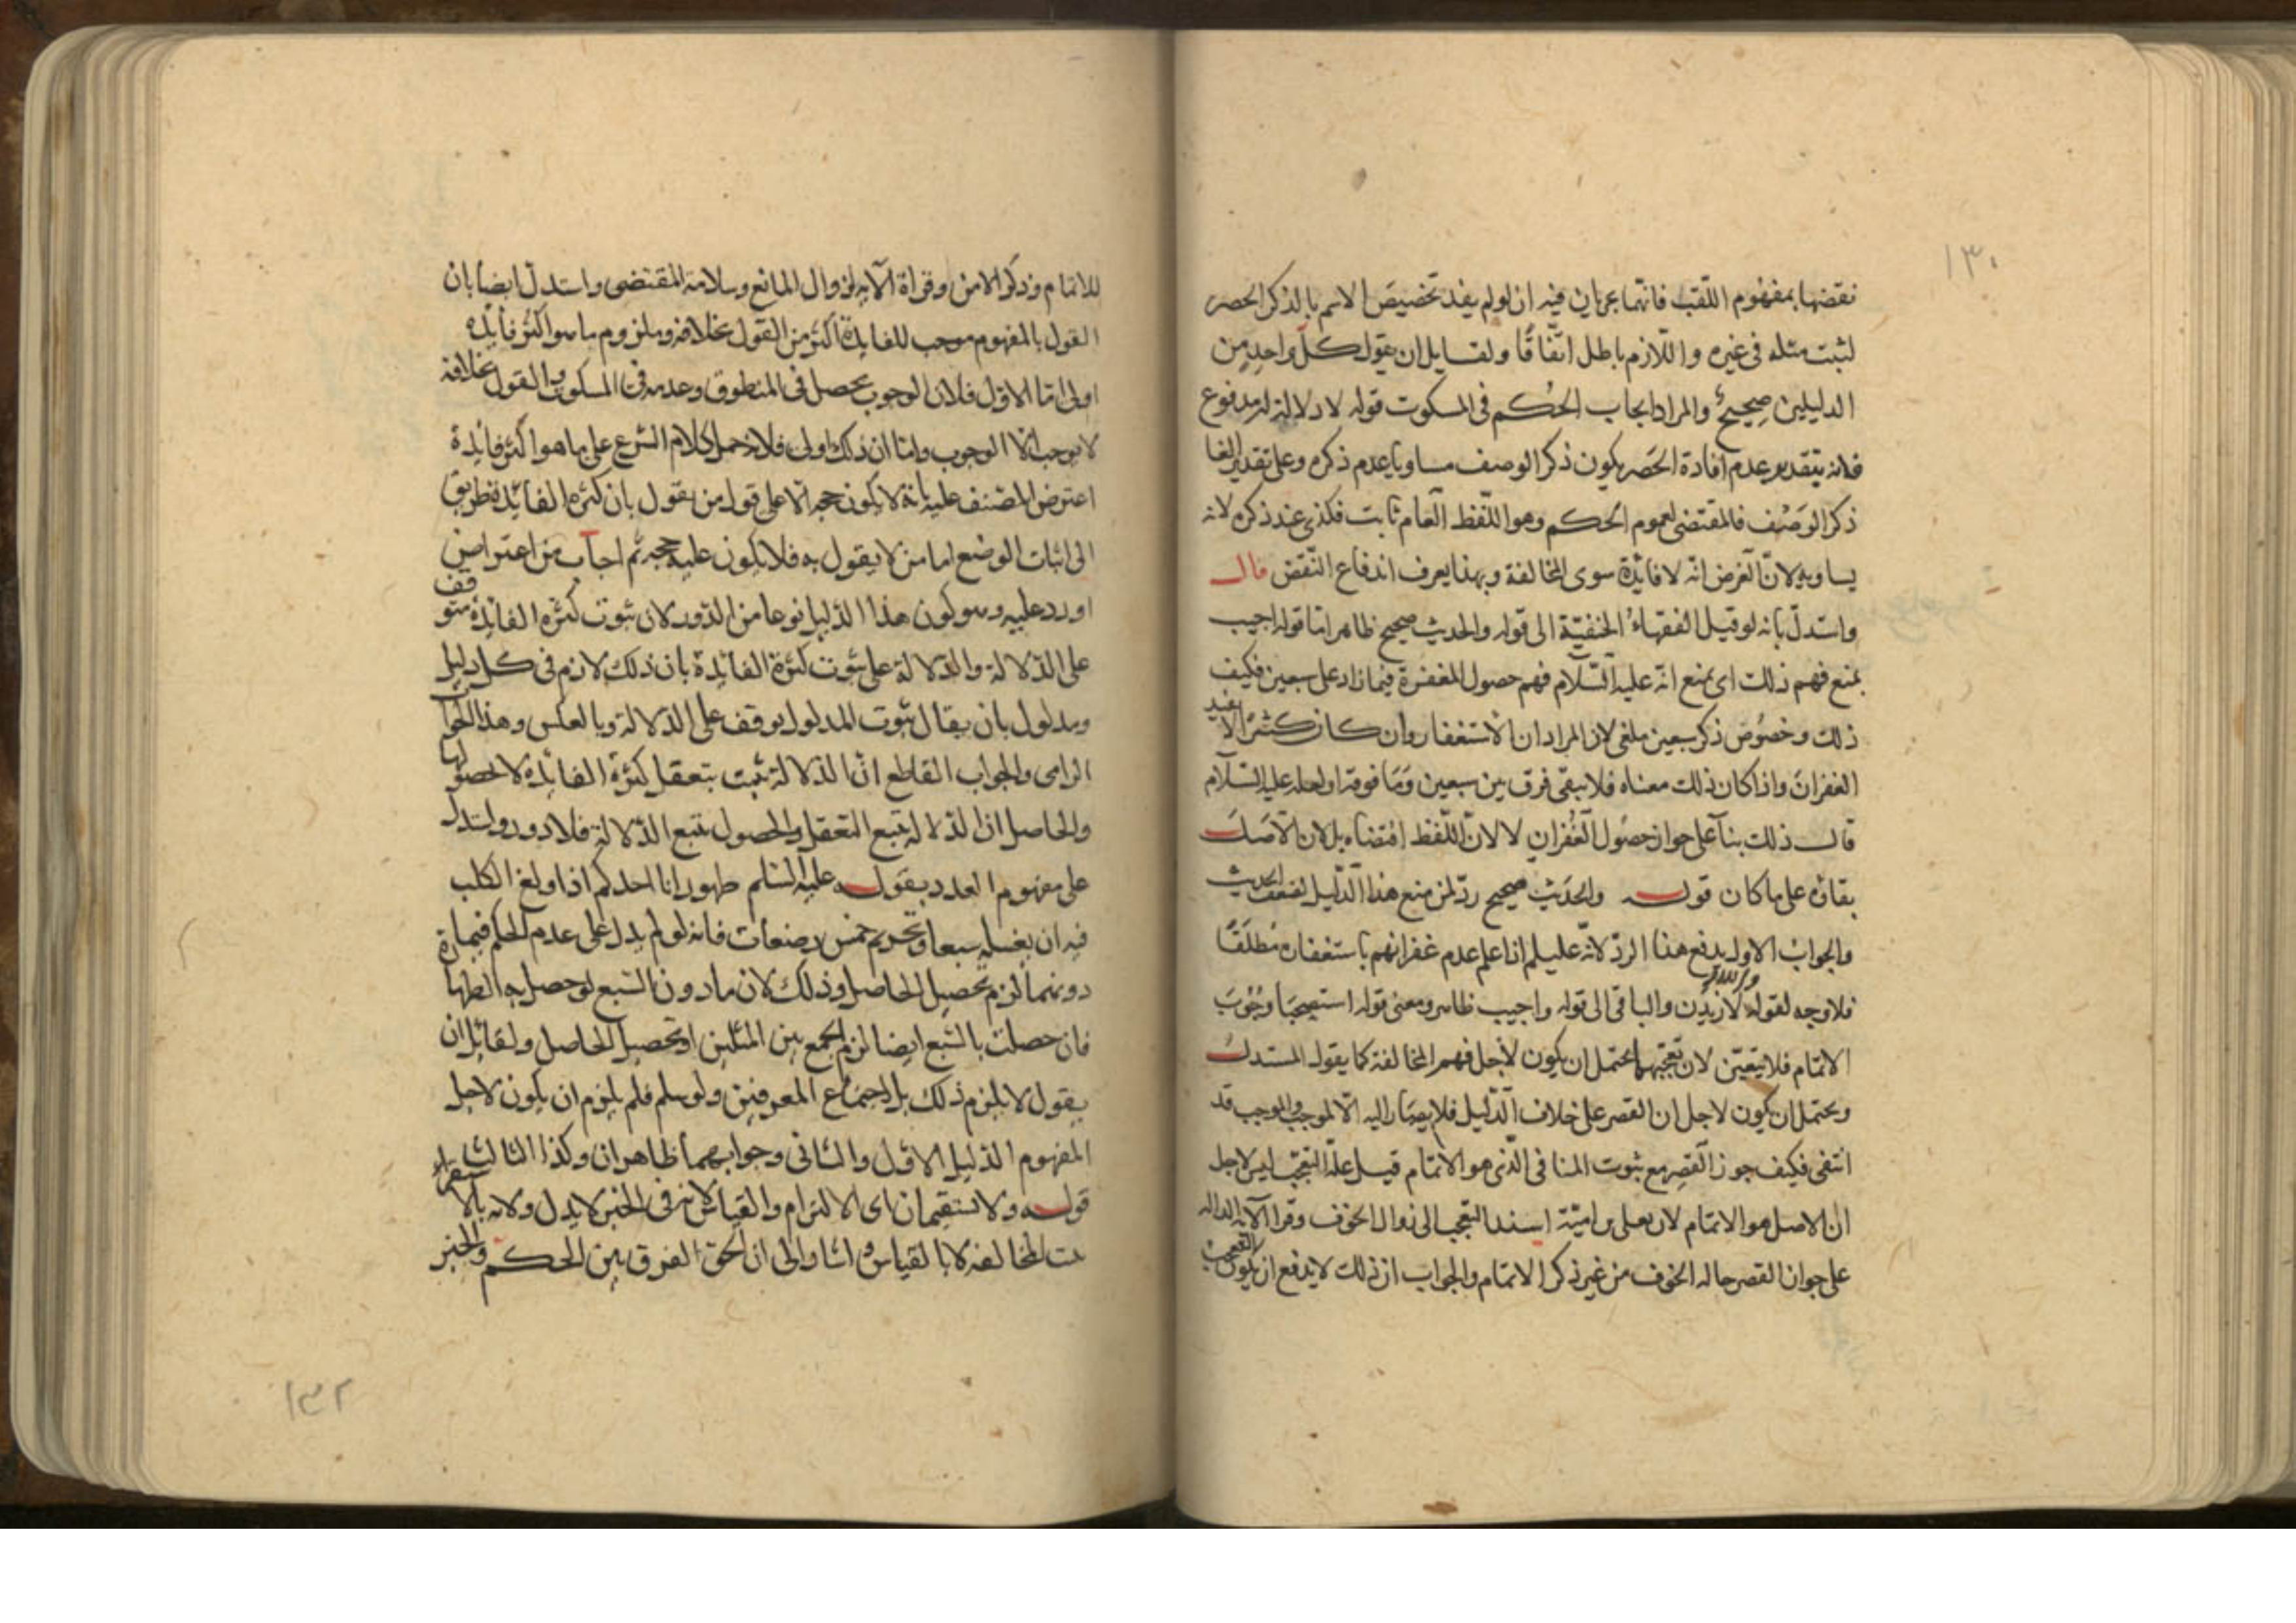 ١٣٠
نقضها بمفهوم اللقب فانهما يجريان فيه اذ لو لم يفد تخصيص الاسم بالذكر الحصر
لثبت مثله فى غيره واللازم باطل اتفاقا ولقايل ان يقول كل واحد من
الدليلين صحيح والمراد ايجاب الحكم فى المسكوت قوله لا دلالة له مدفوع
فانه بتقدير عدم افادة الحصر يكون ذكر الوصف مساويا لعدم ذكره وعلى تقدير الغا
ذكر الوصف فالمقتضى لعموم الحكم وهو اللفظ العام ثابت فكذى عند ذكره لانه
يساويه لان الغرض انه لا فائدة سوى المخالفة وبهذا يعرف اندفاع النقض قال
واستدل بانه لو قيل الفقهاء الحنفية الى قوله والحديث صحيح ظاهر اما قوله اجيب
بمنع فهم ذلك اى يمنع انه عليه السلام فهم حصول المغفرة فيما زاد على سبعين فكيف
ذلك وخصوص ذكر سبعين ملغى لان المراد ان الاستغفار وان كان كثيرا لا يفيد
الغفران واذا كان ذلك معناه فلا يبقى فرق بين سبعين وما فوقه او لعله عليه السلام
قال ذلك بنآ على جواز حصول الغفران لا لان اللفظ اقتضاه بل لان الاصل
بقاؤه على ما كان قوله والحديث صحيح رد لمن منع هذا الدليل لضعف الحديث
والجواب الاول يدفع هذا الرد لانه عليلم اذا علم عدم غفرانهم باستغفاره مطلقا
فلا وجه لقوله لازيدن والباقى الى قوله واجيب ظاهر ومعنى قوله استصحبا وجوب
الاتمام فلا يتعين لان تعجبهما يحتمل ان يكون لاجل فهم المخالفة كما يقول المستدل
ويحتمل ان يكون لاجل ان القصر على خلاف الدليل فلا يصار اليه الا لموجب والموجب قد
انتفى فكيف جوز القصر مع ثبوت المنافى الذى هو الاتمام قيل علة التعجب ليس لاجل
ان الاصل هو الاتمام لان يعلى بن امية اسند التعجب الى زوال الخوف وقرا الآية الدالة
على جواز القصر حاله الخوف من غير ذكر الاتمام والجواب ان ذلك لا يدفع ان يكون التعجب
للاتمام وذكر الامن وقراة الآية لزوال المانع وسلامة المقتضى واستدل ايضا بان
القول بالمفهوم موجب للفايدة اكثر من القول بخلافه وملزوم ما هو اكثر فائدة
اولى اما الاول فلان الوجوب يحصل فى المنطوق وعدمه فى المسكوت والقول بخلافه
لا يوجب الا الوجوب واما ان ذلك اولى فلان حمل كلام الشرع على ما هو اكثر فائدة
اعترض المصنف عليه بانه لا يكون حجه الا على قول من يقول بان كثرة الفائدة طريق
الى اثبات الوضع اما من لا يقول به فلا يكون عليه حجه ثم اجاب من اعتراض
اورد عليه وهو كون هذا الدليل نوعا من الدور لان ثبوت كثره الفائدة متوقف
على الدلالة والدلالة على ثبوت كثرة الفائدة بان ذلك لازم فى كل دليل
ومدلول بان يقال ثبوت المدلول يوقف على الدلالة وبالعكس وهذا الجواب
الزامى والجواب القاطع ان الدلالة تثبت بتعقل كثرة الفائدة لا بحصولها
والحاصل ان الدلالة تتبع التعقل والحصول يتبع الدلالة فلا دور واستدل
على مفهوم العدد بقوله عليه السلم طهور انا احدكم اذا ولغ الكلب
فيه ان يغسله سبعا وتحريم خمس رضعات فانه لو لم يدل على عدم الحكم فيما
دونهما لزم تحصيل الحاصل وذلك لان ما دون السبع لو حصل به الطهارة
فان حصلت بالسبع ايضا لزم الجمع بين المثلين او تحصيل الحاصل ولقائل ان
يقول لا يلزم ذلك بل اجتماع المعرفين ولو سلم فلم يلزم ان يكون لاجل
المفهوم الدليل الاول والثانى وجوابهما ظاهران وكذا الثالث
قوله ولا تستقيمان اى الالتزام والقياس لانه فى الخبر لا يدل ولانه بالاستقراء
المخالفة لا بالقياس واشار الى ان الحق الفرق بين الحكم والخبر
١٣٢